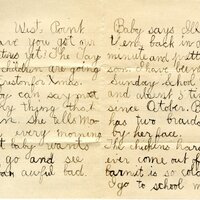 West Point
ave you got our
ting yet? The Day
children are going
Easton for Xmas.
by thing that
n. She tells Mo
every morning
t baby wants
go and see
an awful bad.
Baby says
Very back in a
minute and
son I have been
Sunday School
and absent 2 ti
since October. B
has two braids
by her face.
The chickens hard
ever come out of
barnet is so cold
I go to school